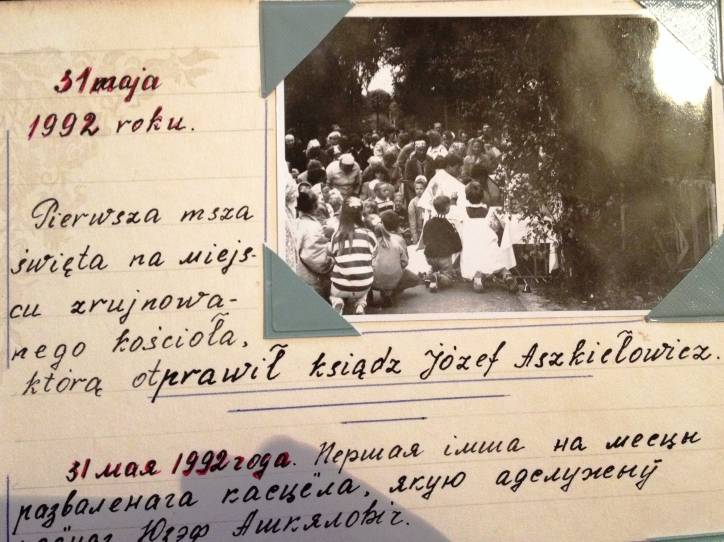 31 maja
1992 roku.
Pierwsza msza
święta na miejs-
cu zrujnowa-
nego kościoła,
którą otprawił ksiądz Józef Aszkiełowicz.
31 мая 1992 года. Першая імша на месцы
разваленага касцёла, якую адслужыў
Юзэф Ашкяловіч.